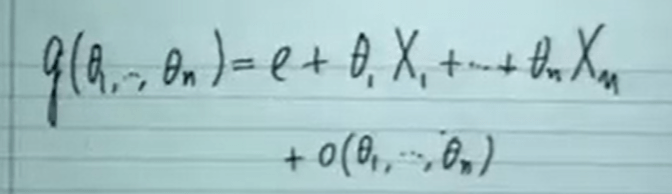 g(θ₁,..,θₙ)= e + θ₁X₁ +...+ θₙXₙ
+ o(θ₁,...,θₙ)